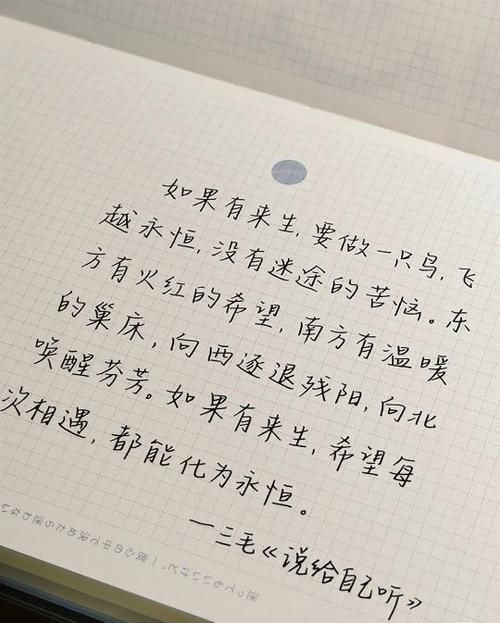 如果有来生,要做一只鸟,飞
越永恒,没有迷途的苦恼。东
方有火红的希望,南方有温暖
的巢床,向西逐退残阳,向北
唤醒芬芳。如果有来生,希望每
次相遇,都能化为永恒。
—三毛《说给自己听》